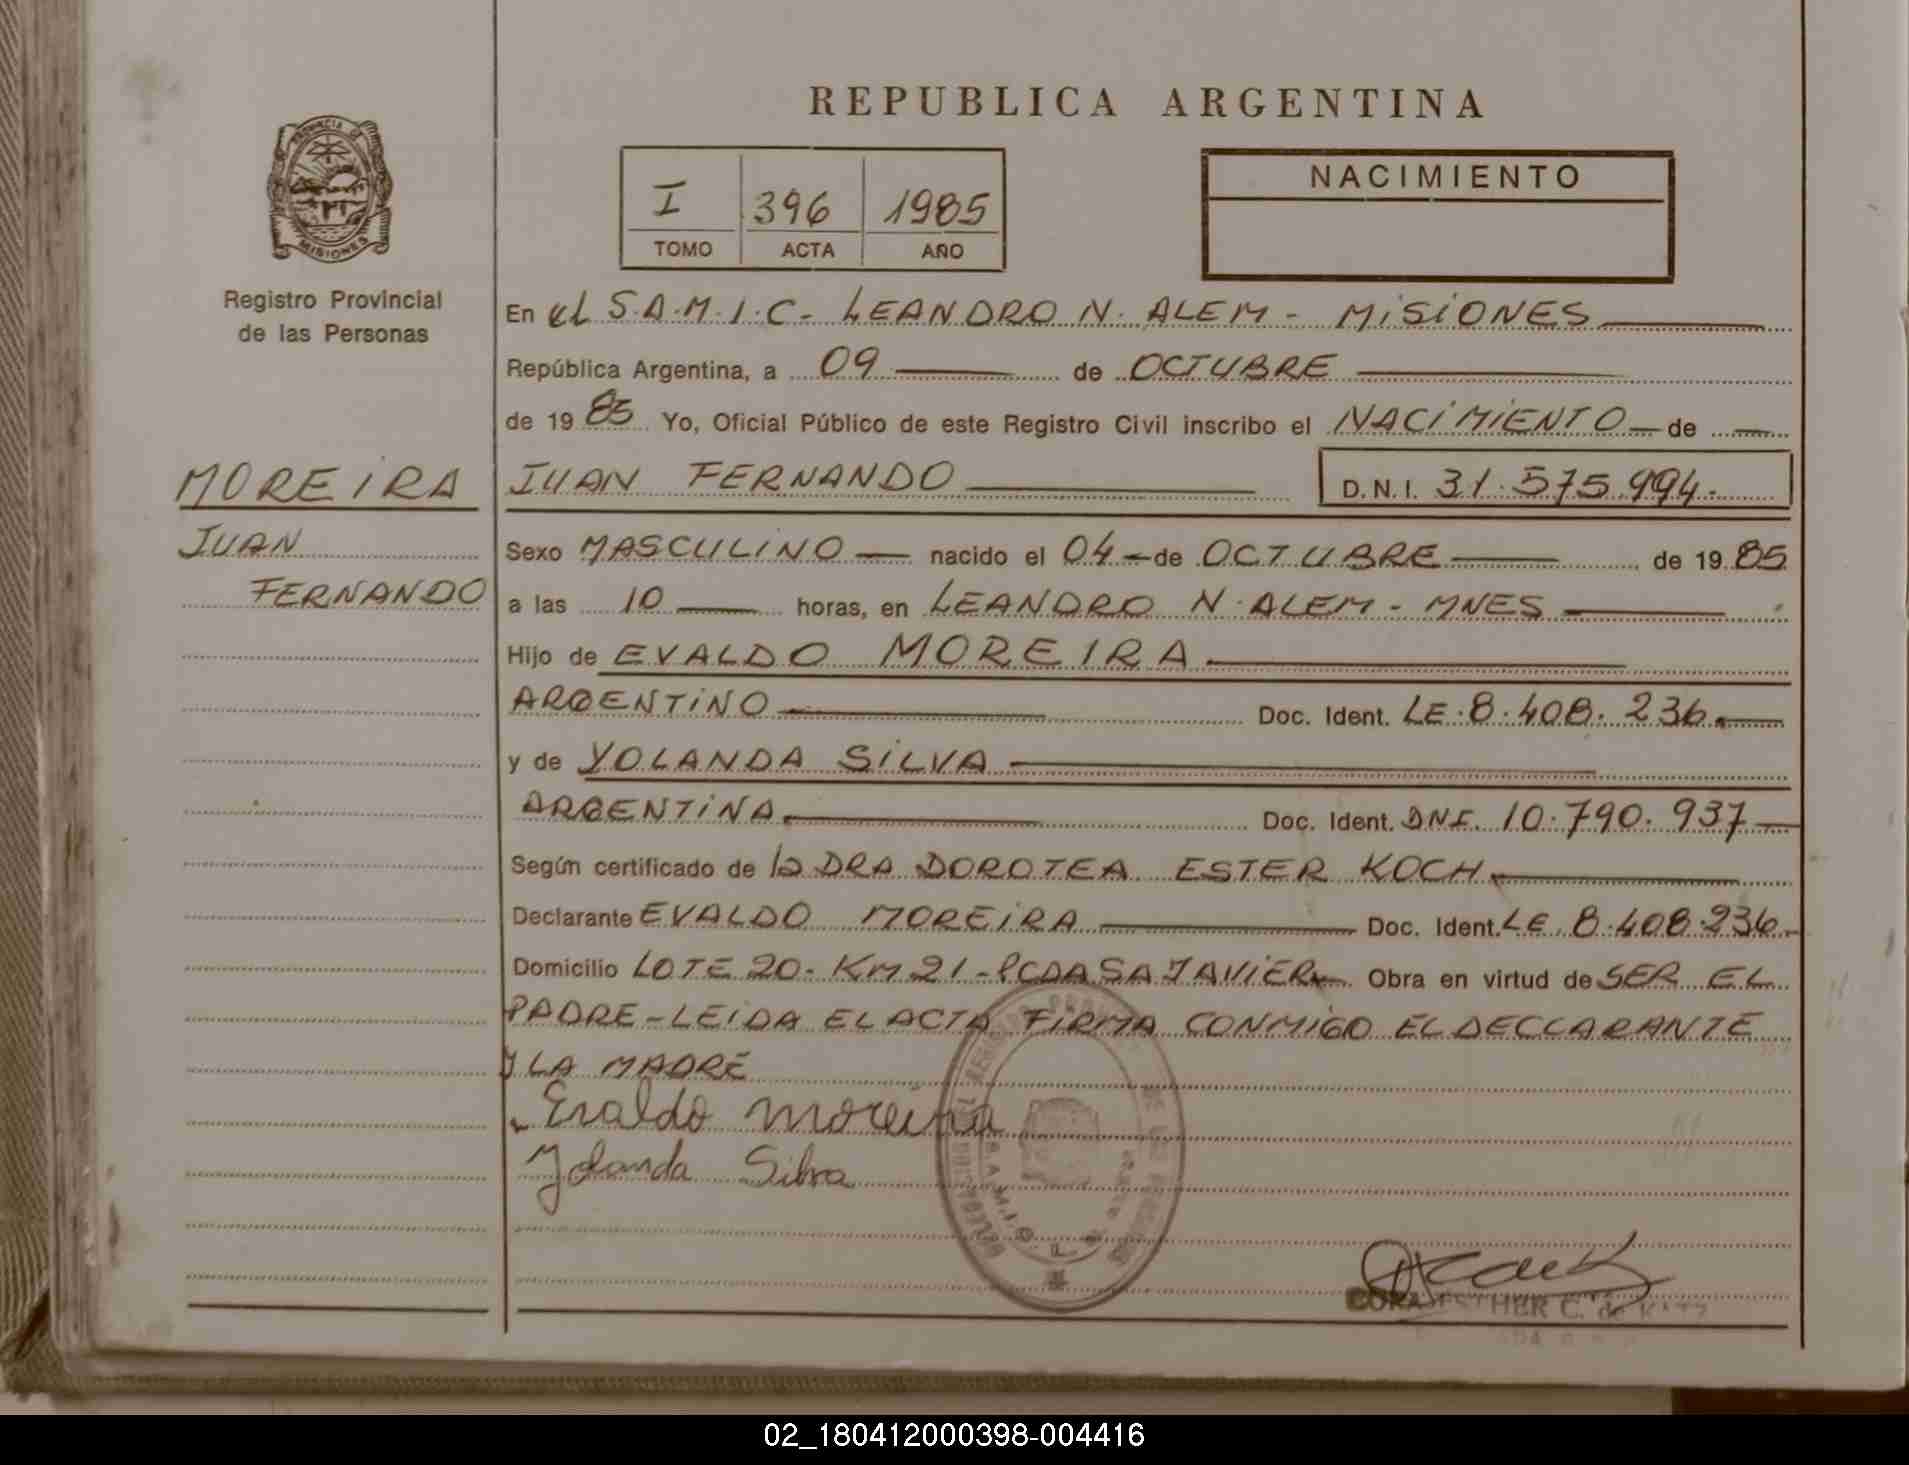 REPUBLICA ARGENTINA
PROVINCIA DE
MISIONES
Registro Provincial
de las Personas
I 396 1985
TOMO ACTA AÑO
NACIMIENTO
En el S.A.M.I.C- LEANDRO N. ALEM - MISIONES
República Argentina, a 09 de OCTUBRE
de 19 85 Yo, Oficial Público de este Registro Civil inscribo el NACIMIENTO de
MOREIRA
JUAN FERNANDO
D.N.I. 31.575.994.
JUAN
FERNANDO
Sexo MASCULINO nacido el 04 de OCTUBRE de 19 85
a las 10 horas, en LEANDRO N. ALEM - MNES
Hijo de EVALDO MOREIRA
ARGENTINO Doc. Ident. LE.8.408.236.
y de YOLANDA SILVA
ARGENTINA Doc. Ident. DNI. 10.790.937
Según certificado de la DRA DOROTEA ESTER KOCH
Declarante EVALDO MOREIRA Doc. Ident. LE 8.408.236
Domicilio LOTE 20- KM 21- PCDA SA JAVIER Obra en virtud de SER EL
PADRE-LEIDA EL ACTA FIRMA CONMIGO EL DECLARANTE
Y LA MADRE
Evaldo Moreira
Yolanda Silva
ESTHER C. de KATZ
02_180412000398-004416